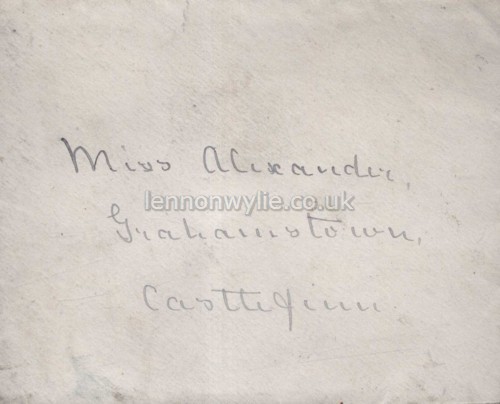 Miss Alexander,
lennonwylie.co.uk
Grahamstown,
Castlefinn.